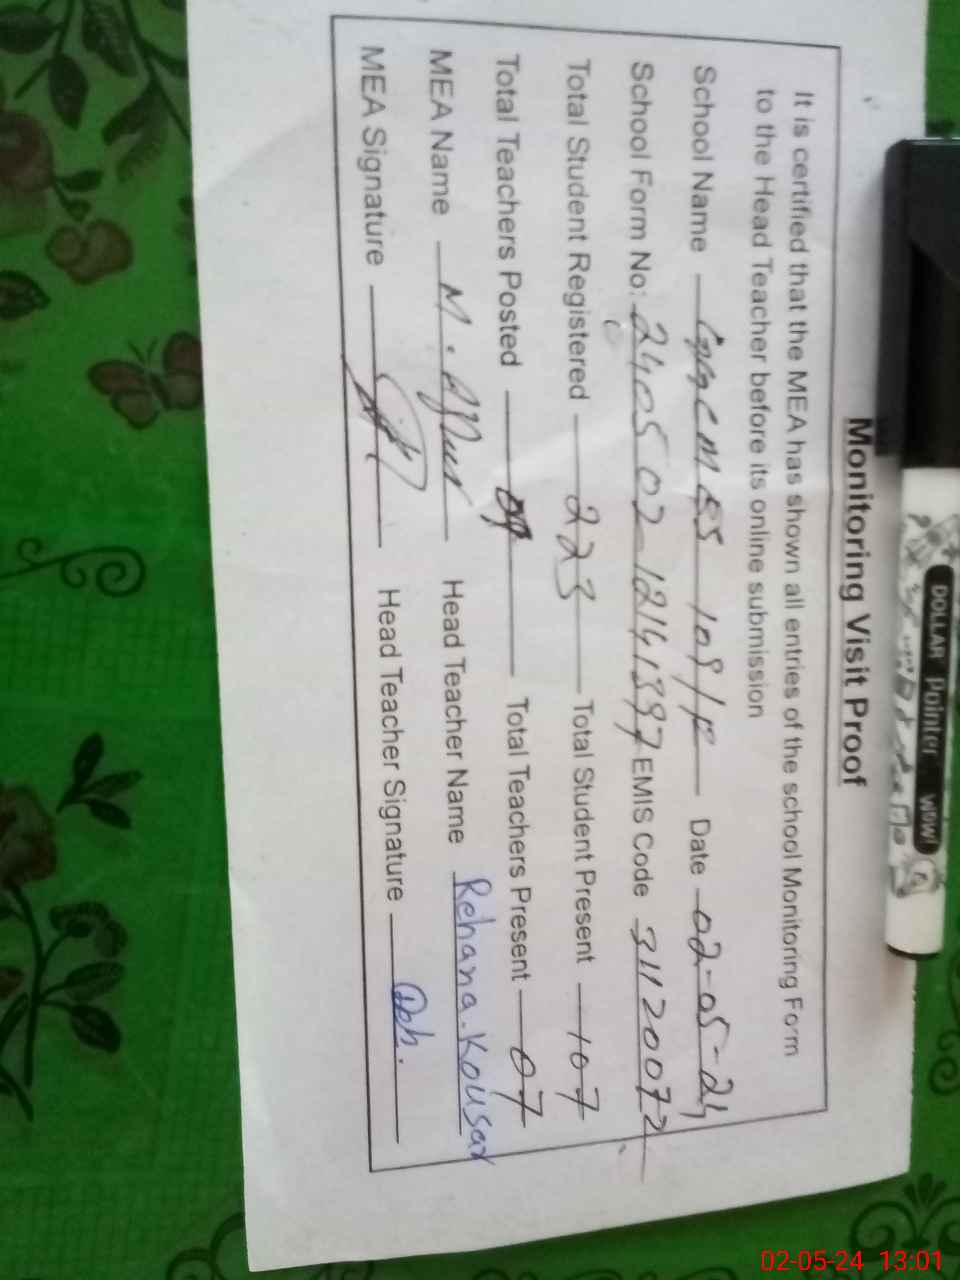 Monitoring Visit Proof
It is certified that the MEA has shown all entries of the school Monitoring Form
to the Head Teacher before its online submission
School Name 109/P Date 02-05-24
School Form No: 240502 EMIS Code 31120072
Total Student Registered 223 Total Student Present 107
Total Teachers Posted Total Teachers Present 07
MEA Name M. Head Teacher Name Rehana.Kousar
MEA Signature Head Teacher Signature
DOLLAR Pointer WOW!
02-05-24 13:01